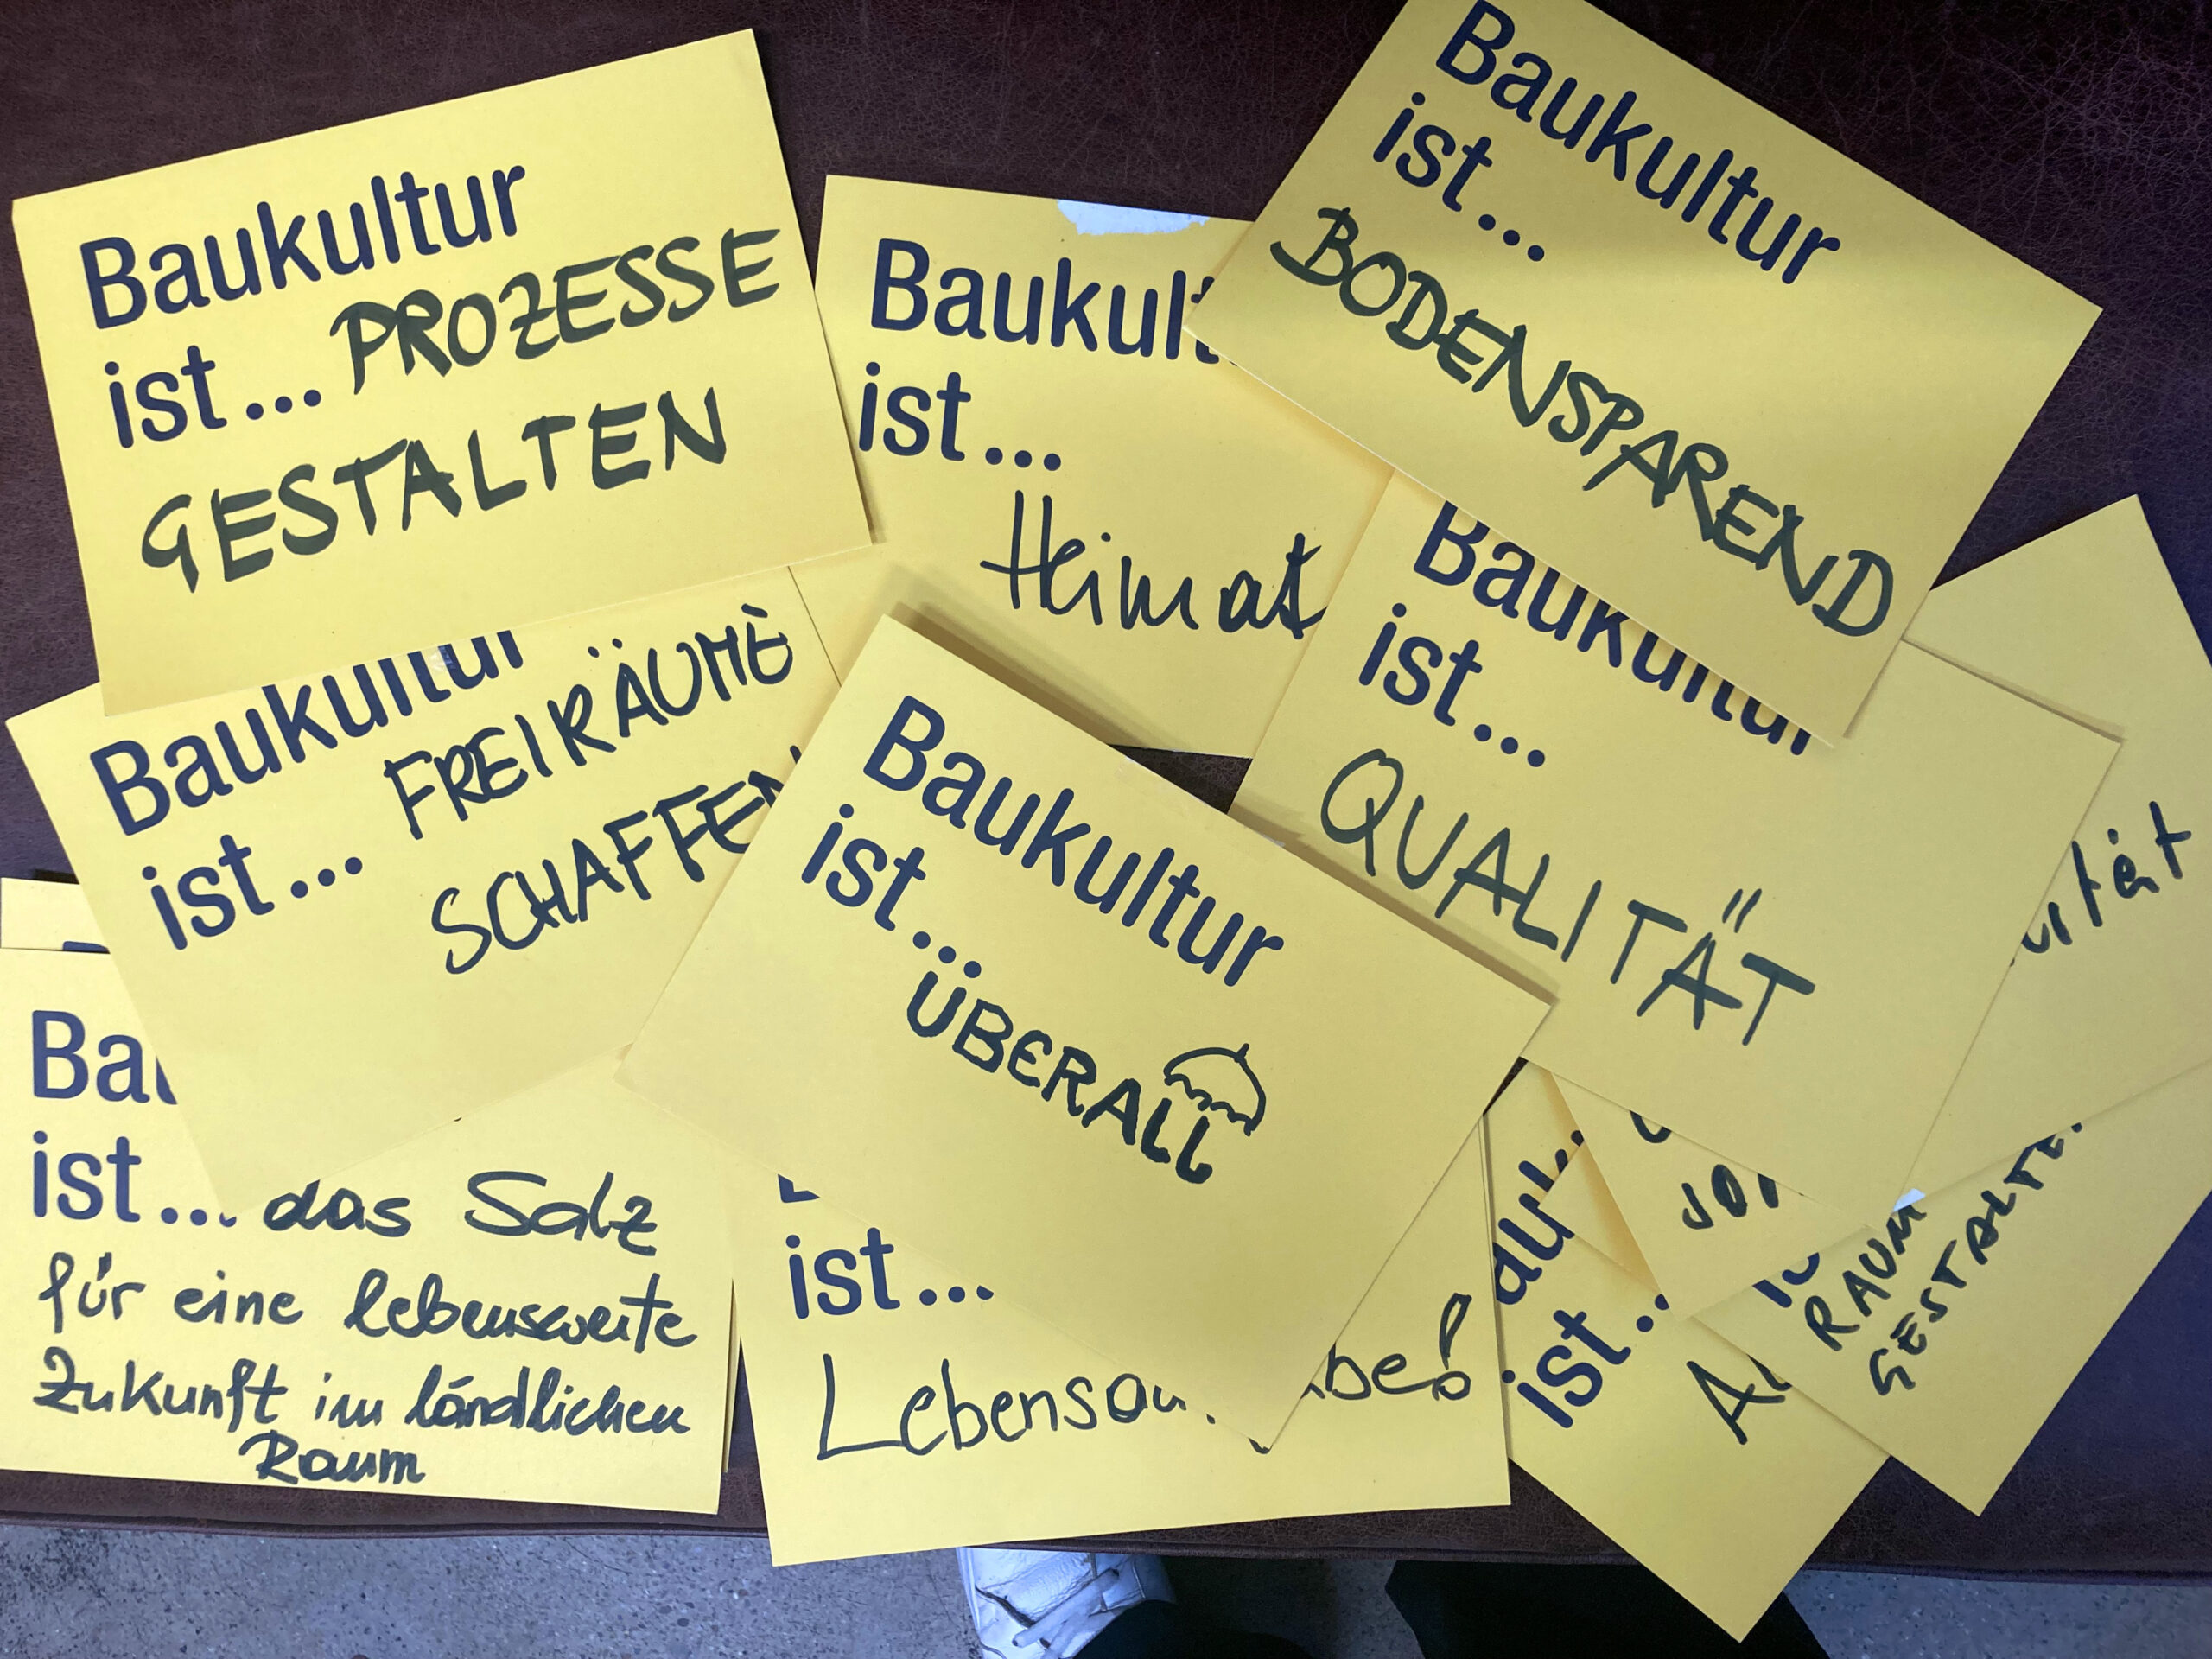 Baukultur
ist... PROZESSE
GESTALTEN
Baukult
ist...
Heimat
Baukultur
ist...
BODENSPAREND
Baukultur
ist... FREIRÄUME
SCHAFFEN
Baukultur
ist...
QUALITÄT
Baukultur
ist...
ÜBERALL
ist... das Salz
für eine lebenswerte
Zukunft im ländlichen
Raum
ist...
ist...
RAUM